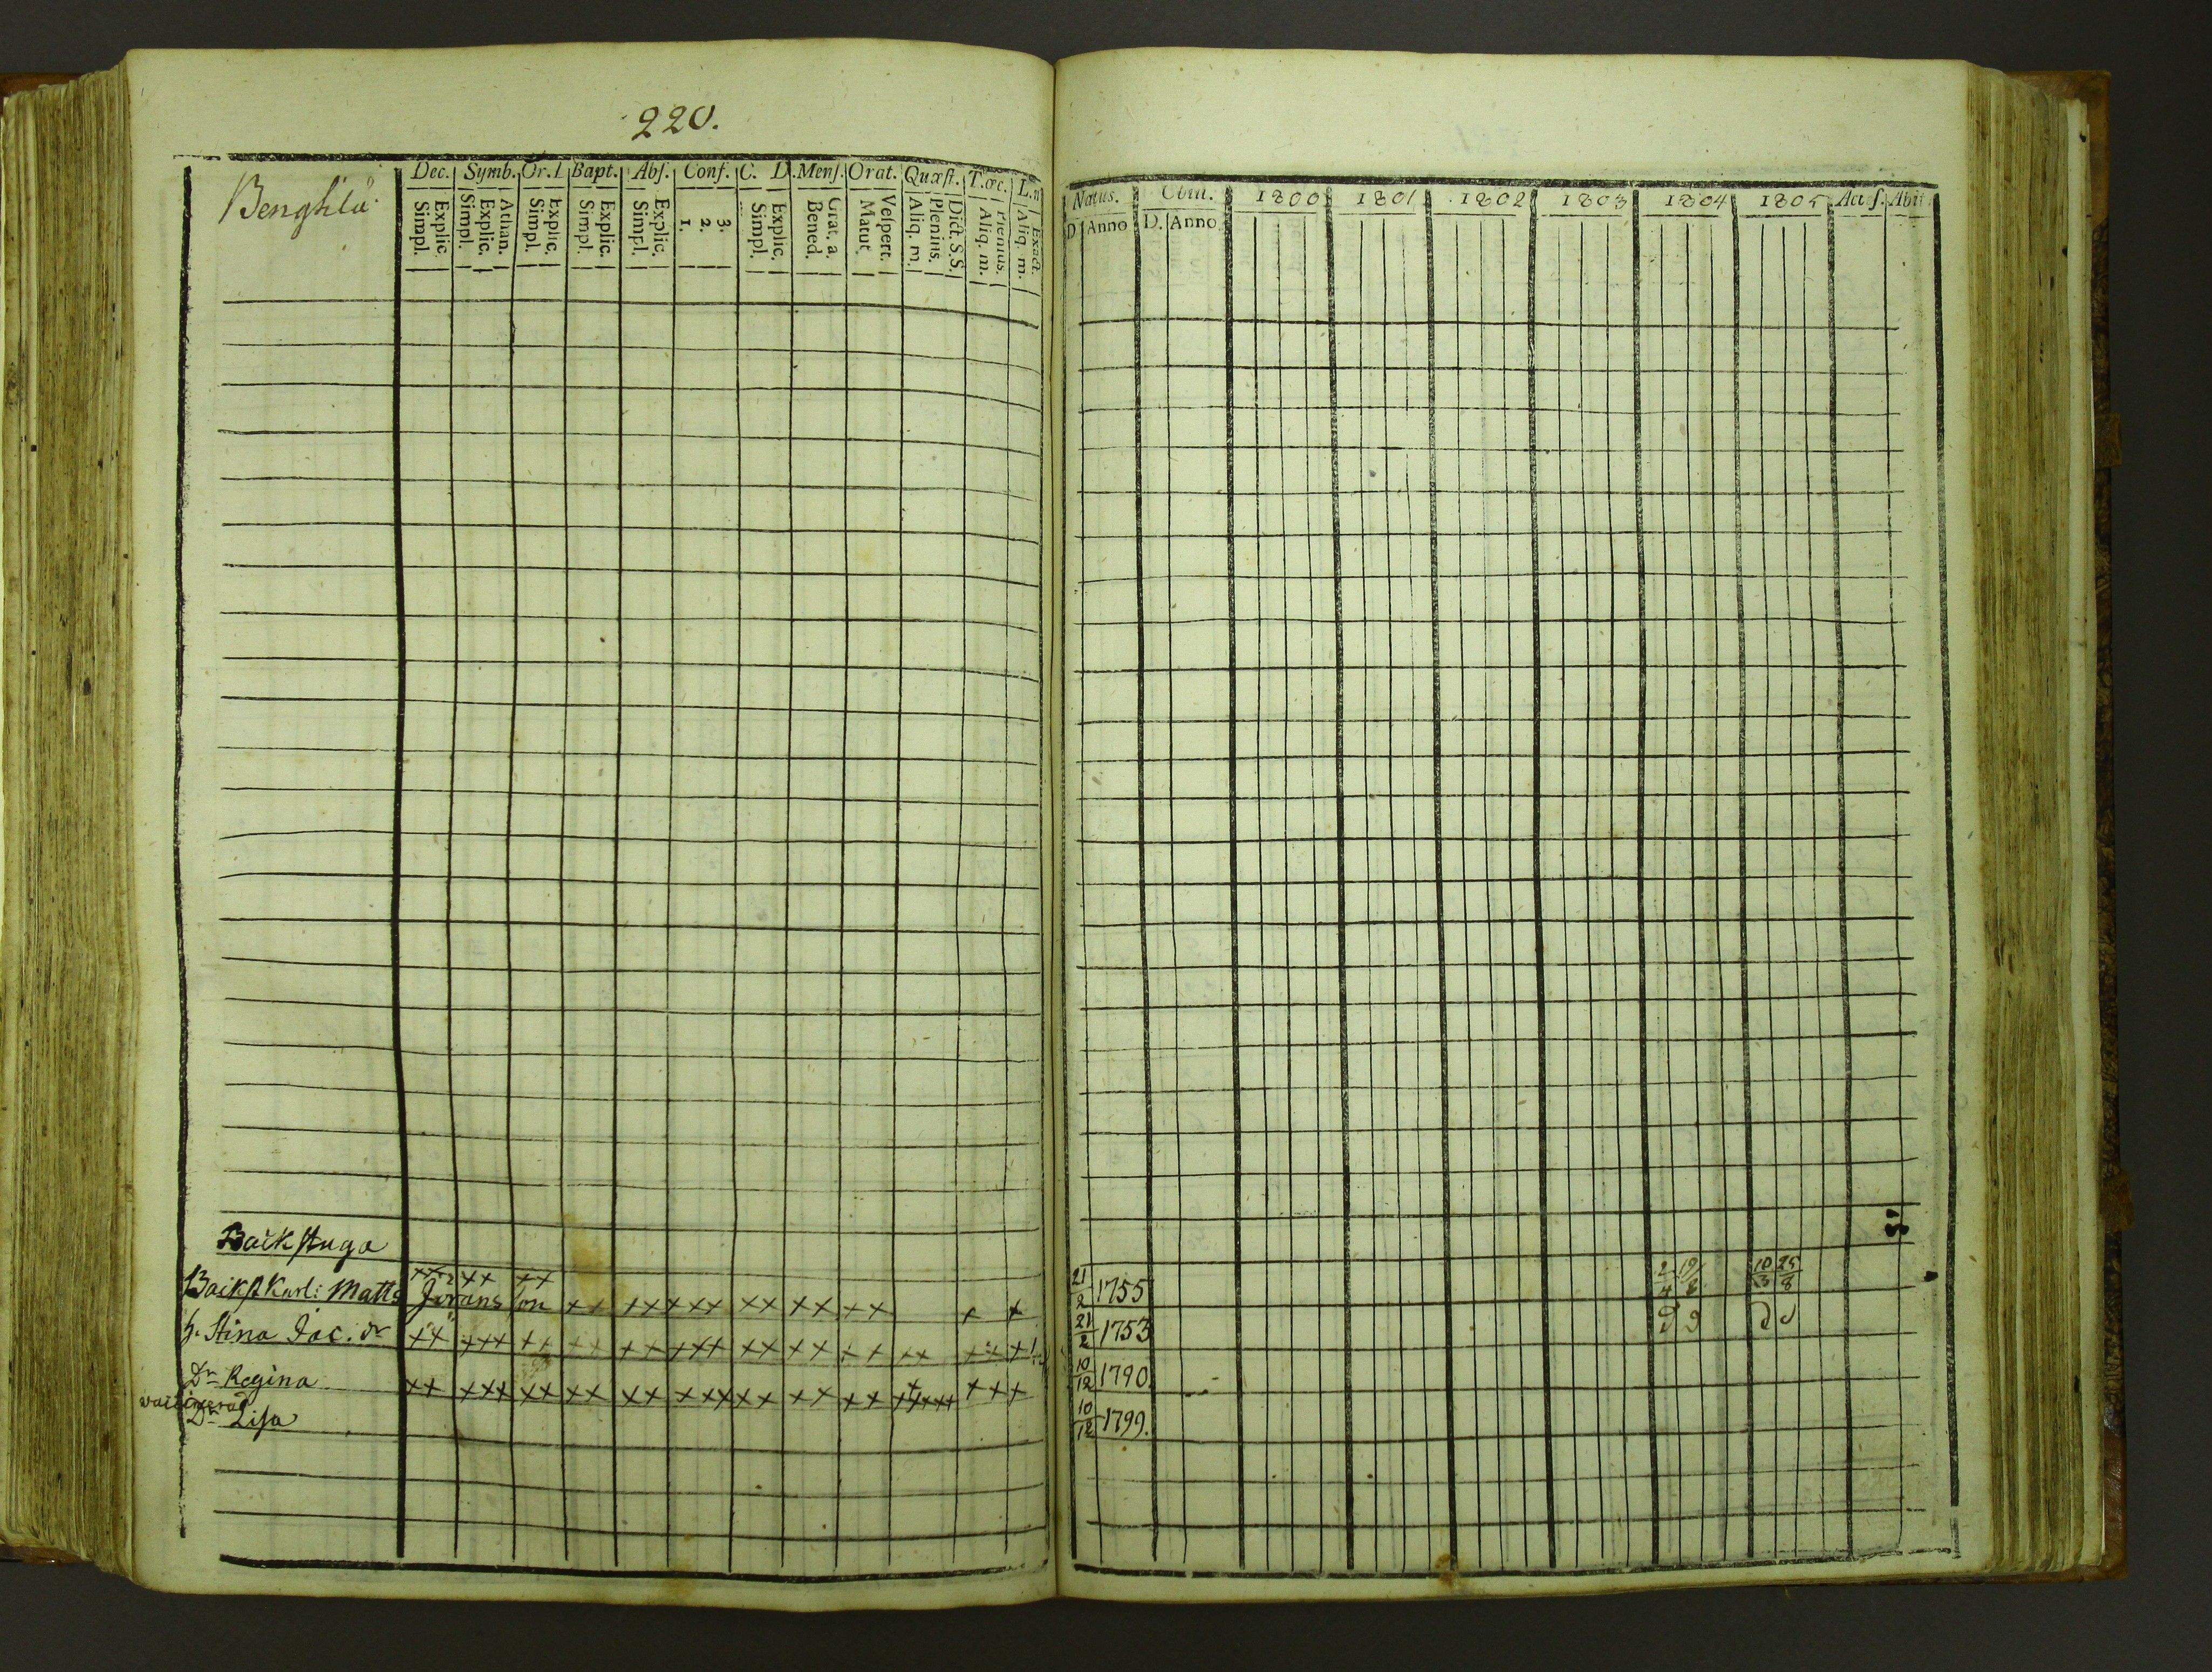 220.
Dec. Symb. Or. Bapt. Abs. Conf. C. D. Mens. Orat. Quæst. T.œc. L.n
Simpl. Explic. Simpl. Explic. Athan. Simpl. Explic. Simpl. Explic. Simpl. Explic. 1. 2. 3. Simpl. Explic. Bened. Grat. a. Matut. Vespert. Aliq. m. Plenius. Dict. S.S. Aliq. m. Plenius. Aliq. m. Exact.
Backstuga
Backst Karl: Matts Jörans son xx xx xx xx xx xx xx x x
h. Stina Jac. dr xx xxx xx xx xx xxx xx xx xx xx
Dr Regina xx xxx xx xx xx xxx xx xx xx xxx
Dr Lisa
Natus. Obiit. 1800 1801 1802 1803 1804 1805 Acc s. Abii
D. Anno D. Anno
21/2 1755 10/3 25/8
21/2 1753
10/12 1790.
10/12 1799.